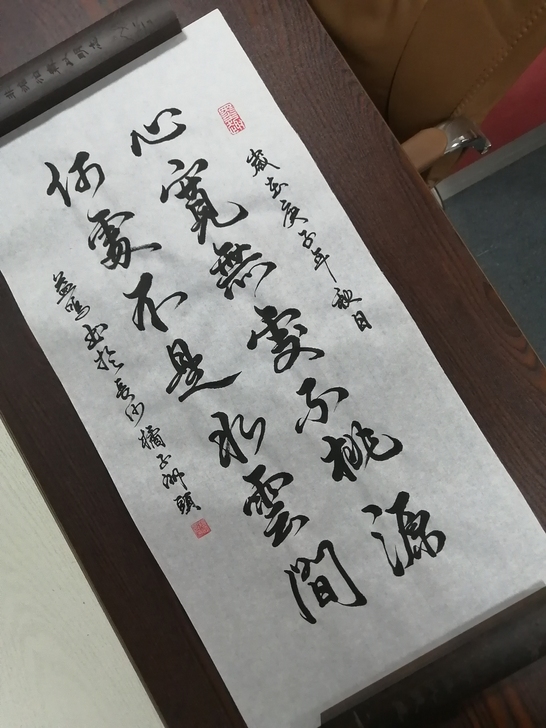 歲在庚子年秋月
心寬無處不桃源
何處不是水雲間
益鳴書於長沙橘子洲頭